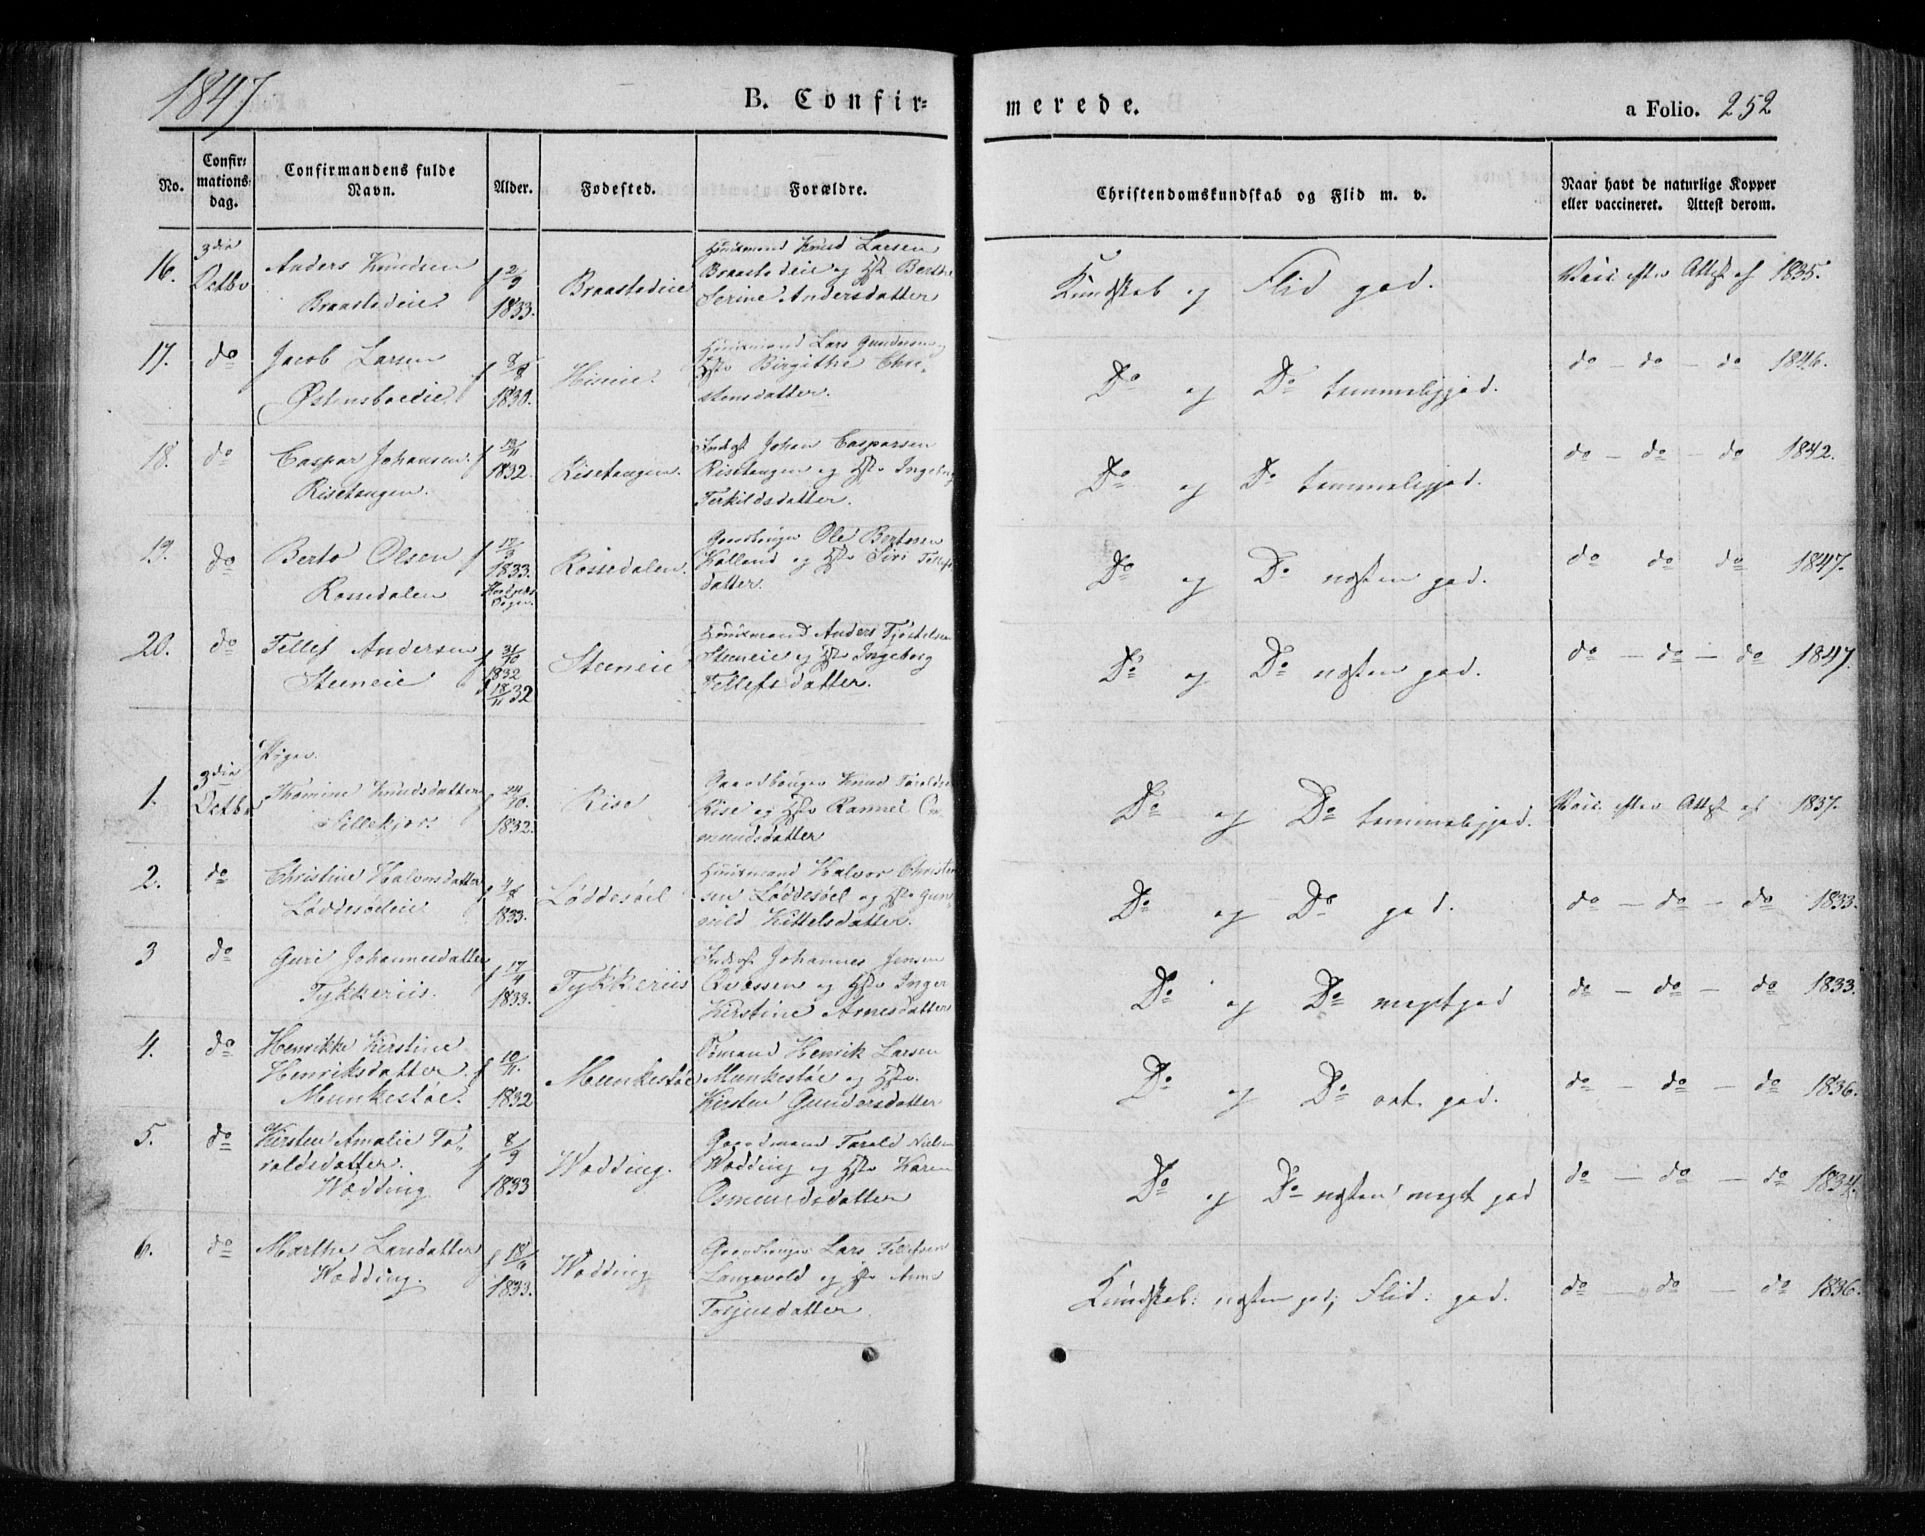 1847
B. Confir=
merede.
a Folio. 252
No.
Confir=
mations=
dag.
Confirmandens fulde
Navn.
Alder.
Fodested.
Forældre.
Christendomskundskab og Flid m. v.
Naar havt de naturlige Kopper
eller vaccineret. Attest derom.
16.
3die
Octbr
Anders Knudsen
Braastedeie
f 2/9
1833.
Braastedeie
Huusmand Knud Larsen
Braastedeie og Hst Berthe
Serine Andersdatter
Kundskab og Flid god.
Vacc. efter Attest af 1835.
17.
do
Jacob Larsen
Østensboeeie
1830.
Hisøie.
Huusmand Lars Gundersen
Hst Birgithe Chri-
stensdatter.
Do og Do temmeliggod.
do - do - do 1846.
18.
do
Caspar Johansen
Risetangen.
f 13/11
1832.
Risetangen.
Inderst Johan Caspersen
Risetangen og Hst Ingeborg
Terkildsdatter.
Do og Do temmeliggod.
do - do - do 1842.
19.
do
Berto Olsen
Rossedalen
f 17/9
1833.
Rossedalen.
Gaardbruger Ole Bertosen
Holland og Hst Siri Tellefs
datter.
Do og Do næsten god.
do do do 1847.
20.
do
Tellef Andersen
Steeneie
f 31/10
1832
18/11 32
Steeneie
Huusmand Anders Tjøstelsen
Steeneie og Hst Ingeborg
Tellefsdatter.
Do og Do næsten god.
do - do - do 1847.
Piger.
1.
3die
Octbr
Thomine Knudsdatter
f 24/10.
1832.
Rise
Gaardbruger Knud Taraldsen
Rise og Hst Rannei Os-
mundsdatter
Do og Do temmeliggod.
Vacc. efter Attest af 1837.
2.
do
Christine Halvorsdatter
Løddesøeleie
1833.
Løddesøel
Huusmand Halvor Christen
sen Løddesøel og Hst Gun
vild Kittelsdatter.
Do og Do god.
do - do - do 1833.
3
do
Guri Johannesdatter
Tykkeriis.
f 17/4
1833.
Tykkeriis
Inderst Johannes Jensen
og Hst Inger
Kirstine Arnesdatter
Do og Do megetgod
do - do - do 1833.
4.
do
Henrikke Kirstine
Henriksdatter
Munkestøe.
f 10/11.
1832
Munkestøe
Sømand Henrik Larsen
Munkestøe og Hst
Kirsten Gundersdatter
Do og Do ret god.
do - do - do 1836.
5.
do
Kirsten Amalie Ta-
raldsdatter.
Wædding
f 8/9
1833
Wædding.
Gaardmand Tarald Nielsen
Wædding og Hst Karen
Osmundsdatter
Do og Do næsten meget god
do - do - do 1834.
6.
do
Marthe Larsdatter
Wædding.
1833.
Wædding
Gaardbruger Lars Tellefsen
Langevold og Hst Anne
Terjesdatter
Kundskab: næsten god; Flid: god.
do - do - do 1836.